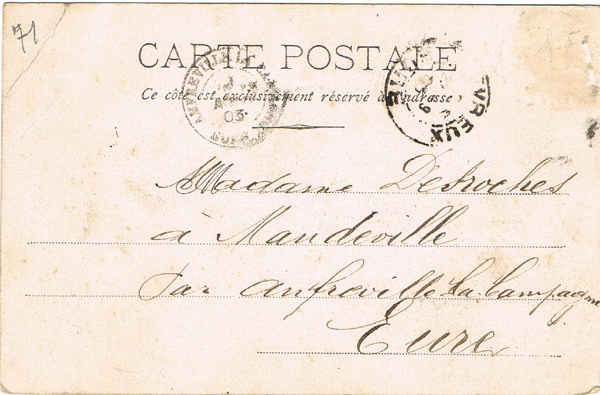 71
CARTE POSTALE
Ce côté est exclusivement réservé à l'adresse
03
EVREUX
Madame Desroches
à Mandeville
Par Amfreville la Campagne
Eure